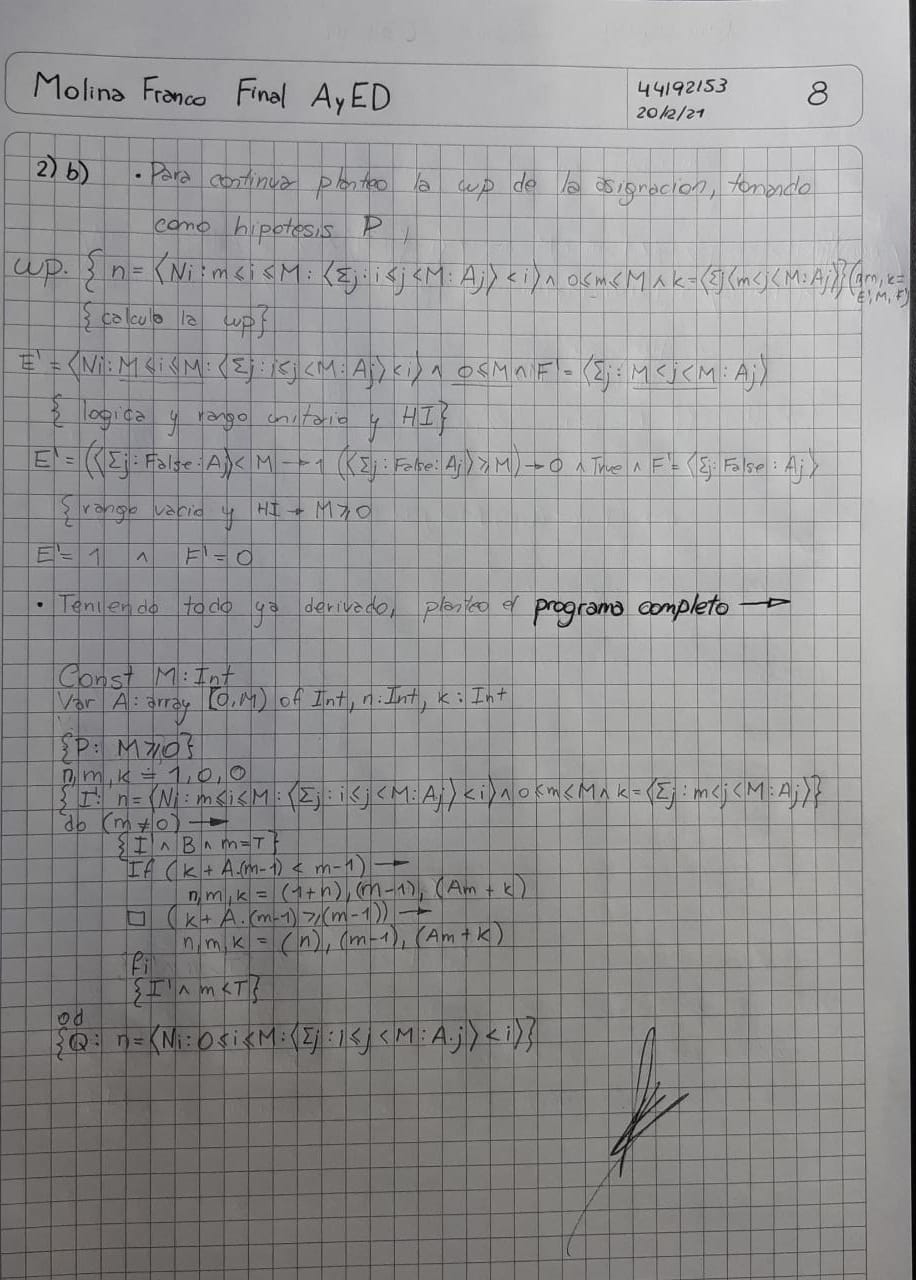 Molina Franco Final AyED
44192153
20/2/21
8
2) b) • Para continuar planteo la wp de la asignacion, tomando
como hipotesis P,
wp. { n = ⟨Ni : m ≤ i ≤ M : ⟨Σj : i ≤ j < M : Aj⟩ < i⟩ ∧ 0 ≤ m ≤ M ∧ k = ⟨Σj ⟨m < j < M : Aj⟩} (n,m,k =
E', M, F')
{calculo la wp}
E' = ⟨Ni : M ≤ i ≤ M : ⟨Σj : i ≤ j < M : Aj⟩ < i⟩ ∧ 0 ≤ M ∧ F' = ⟨Σj : M < j < M : Aj⟩
{ logica y rango unitario y HI}
E' = (⟨Σj : False : Aj⟩ < M → 1 (⟨Σj : False : Aj⟩ ≥ M) → 0 ∧ True ∧ F' = ⟨Σj : False : Aj⟩
{rango vacio y HI → M ≥ 0
E' = 1 ∧ F' = 0
• Teniendo todo ya derivado, planteo el programa completo →
Const M : Int
Var A : array [0,M) of Int, n : Int, k : Int
{P : M ≥ 0}
n,m,k = 1,0,0
{I' : n = ⟨Ni : m ≤ i ≤ M : ⟨Σj : i ≤ j < M : Aj⟩ < i⟩ ∧ 0 ≤ m ≤ M ∧ k = ⟨Σj : m < j < M : Aj⟩}
do (m ≠ 0) →
{I' ∧ B ∧ m = T}
If (k + A.(m-1) < m-1) →
n,m,k = (1+n), (m-1), (Am + k)
□ (k + A.(m-1) ≥ (m-1)) →
n,m,k = (n), (m-1), (Am + k)
fi
{I' ∧ m < T}
od
{Q : n = ⟨Ni : 0 ≤ i ≤ M : ⟨Σj : i ≤ j < M : A.j⟩ < i⟩}